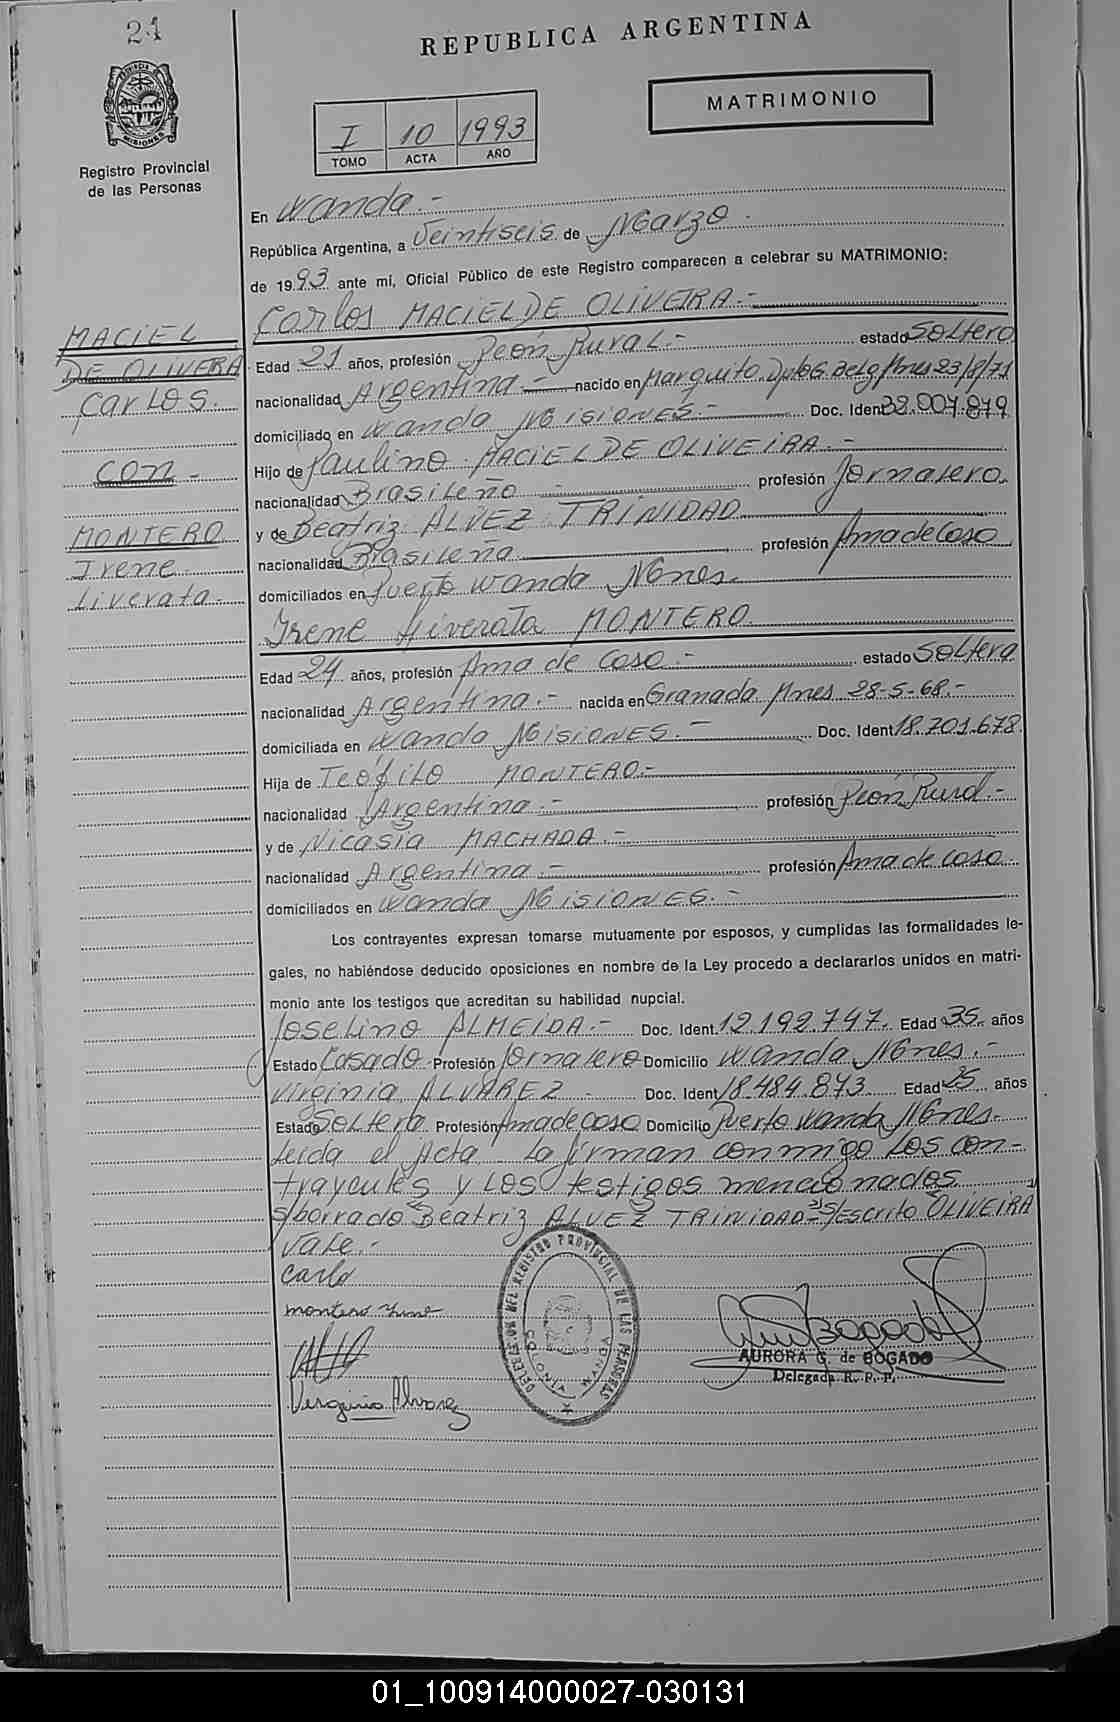 24
REPUBLICA ARGENTINA
MATRIMONIO
I 10 1993
TOMO ACTA AÑO
Registro Provincial
de las Personas
En Wanda.-
República Argentina, a Veintiseis de Marzo.
de 1993 ante mí, Oficial Público de este Registro comparecen a celebrar su MATRIMONIO:
Carlos MACIEL DE OLIVEIRA.-
MACIEL
DE OLIVERA
Carlos.
con-
MONTERO
Irene
Liverata.
Edad 21 años, profesión Peón Rural.- estado Soltero
nacionalidad Argentina.- nacido en Dpto G. Belg/Mnes 23/8/71
domiciliado en Wanda Misiones.- Doc. Ident
Hijo de Paulino MACIEL DE OLIVEIRA.-
nacionalidad Brasileño profesión Jornalero.
y de Beatriz ALVEZ TRINIDAD
nacionalidad Brasileña profesión Ama de Casa
domiciliados en Puerto Wanda Mnes.
Irene Liverata MONTERO.
Edad 24 años, profesión Ama de Casa.- estado Soltera
nacionalidad Argentina.- nacida en Granada Mnes 28-5-68.-
domiciliada en Wanda Misiones.- Doc. Ident 18.701.678
Hija de Teófilo MONTERO.-
nacionalidad Argentina.- profesión Peón Rural.-
y de Nicasia MACHADA.-
nacionalidad Argentina.- profesión Ama de casa
domiciliados en Wanda Misiones.-
Los contrayentes expresan tomarse mutuamente por esposos, y cumplidas las formalidades le-
gales, no habiéndose deducido oposiciones en nombre de la Ley procedo a declararlos unidos en matri-
monio ante los testigos que acreditan su habilidad nupcial.
Joselino ALMEIDA.- Doc. Ident. 12.192.747. Edad 35 años
Estado Casado Profesión Jornalero Domicilio Wanda Mnes.-
Virginia ALVAREZ Doc. Ident 18.484.873 Edad 25 años
Estado Soltera Profesión Ama de casa Domicilio Puerto Wanda Mnes.
Leida el Acta La firman conmigo los con-
trayentes y los testigos mencionados
S/borrado Beatriz ALVEZ TRINIDAD S/Escrito OLIVEIRA
Vale.-
Carlo
montero Irene
Verginia Alvarez
DELEGACION DEL REGISTRO PROVINCIAL DE LAS PERSONAS
AURORA G. de BOGADO
Delegada R. P. P.
01_100914000027-030131